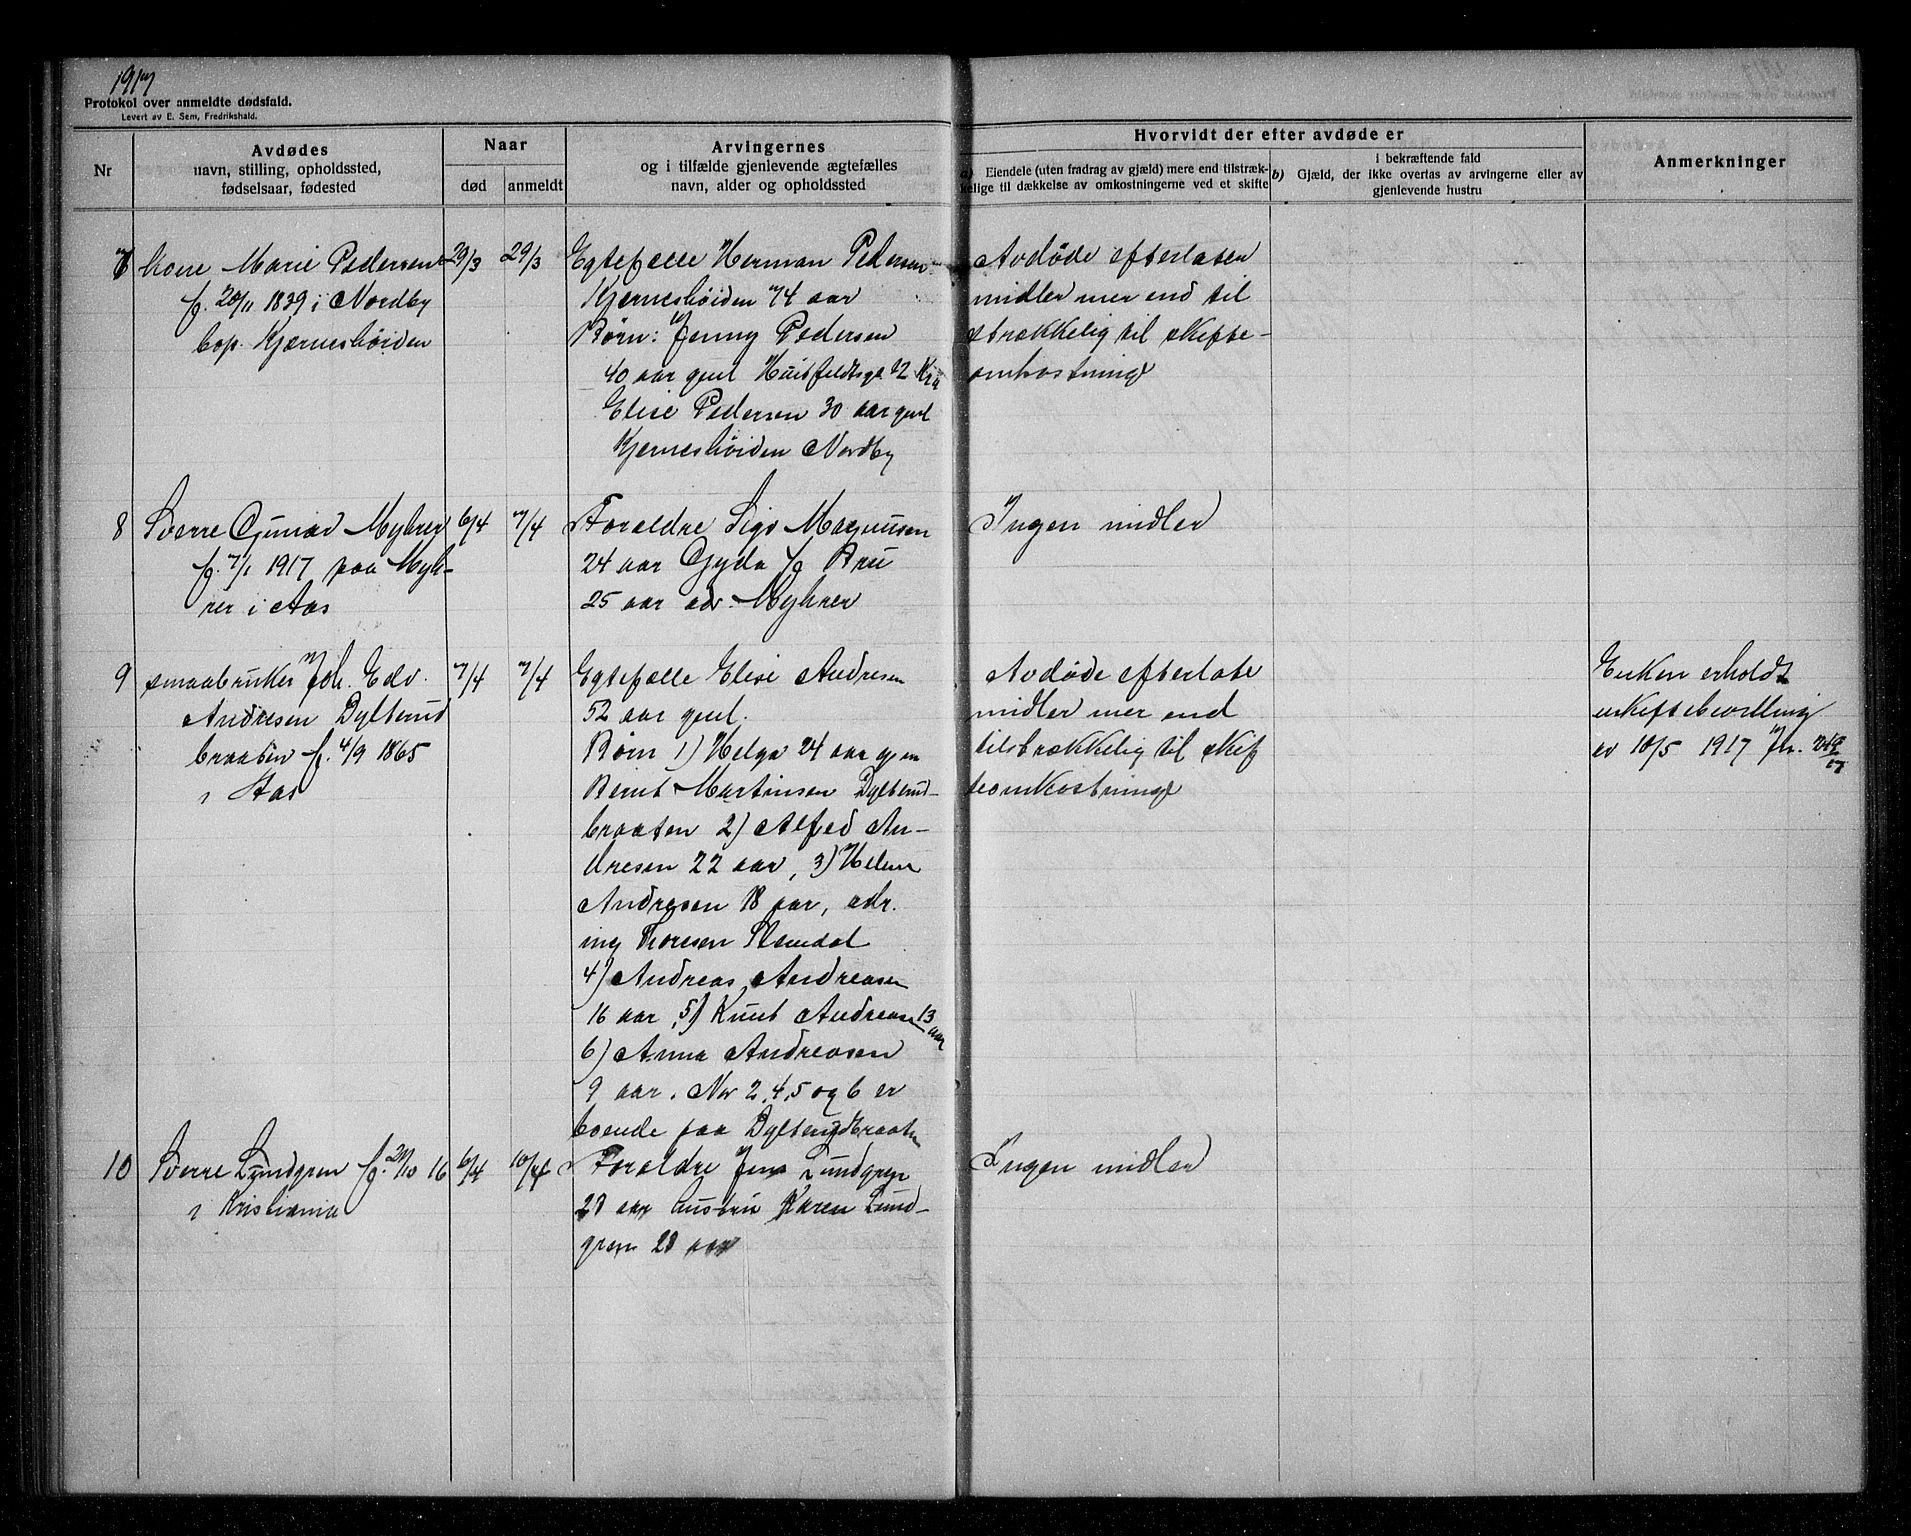 1917
Protokol over anmeldte dødsfald.
Levert av E. Sem, Fredrikshald.
Nr
Avdødes
navn, stilling, opholdssted,
fødselsaar, fødested
Naar
død
anmeldt
Arvingernes
og i tilfælde gjenlevende ægtefælles
navn, alder og opholdssted
Hvorvidt der efter avdøde er
a) Eiendele (uten fradrag av gjæld) mere end tilstræk-
kelige til dækkelse av omkostningerne ved et skifte
I bekræftende fald
b) Gjæld, der ikke overtas av arvingerne eller av
gjenlevende hustru
Anmerkninger
7
kone Marie Pedersen
f. 20/11 1839 i Nordby
bop. Kjærneshøiden
29/3
29/3
Egtefælle Herman Pedersen
Kjerneshøiden 74 aar
Børn: Jenny Pedersen
40 aar gml Huitfeldtsgt 12 Kria
Elise Pedersen 30 aar gml
Kjerneshøiden Nordby
Avdøde efterlater
midler mer end til
strækkelig til skifte-
omkostning
8
Sverre Gunnar Myhrer
f. 7/1 1917 paa Myh-
rer i Aas
6/4
7/4
Foraldre Sigv Magnussen
24 aar Gyda f/ Bru
25 aar adr. Myhrer
Ingen midler
9
smaabruker Joh. Edv.
Andresen Dylterud
braaten f. 4/9 1865
i Aas
7/4
7/4
Egtefælle Elise Andresen
52 aar gml.
Børn 1) Helga 24 aar g m
Bernt Martinsen Dylterud-
braaten 2) Alfred An-
dresen 22 aar, 3) Helene
Andresen 18 aar, adr.
ing Thoresen
4) Andreas Andreasen
16 aar, 5) Knut Andreasen 13 aar
6) Anna Andreasen
9 aar. No 2,4,5 og 6 er
boende paa Dylterudbraaten
Avdøde efterlate
midler mer end
tilstrækkelig til skif
teomkostninge
Enken erholdt
uskiftebevilling
av 10/5 1917
10
Sverre Lundgren f. 16
i Kristiania
6/4
10/4
Foraldre Jens Lundgren
aar hustru Karen Lund-
gren 28 aar
Ingen midler